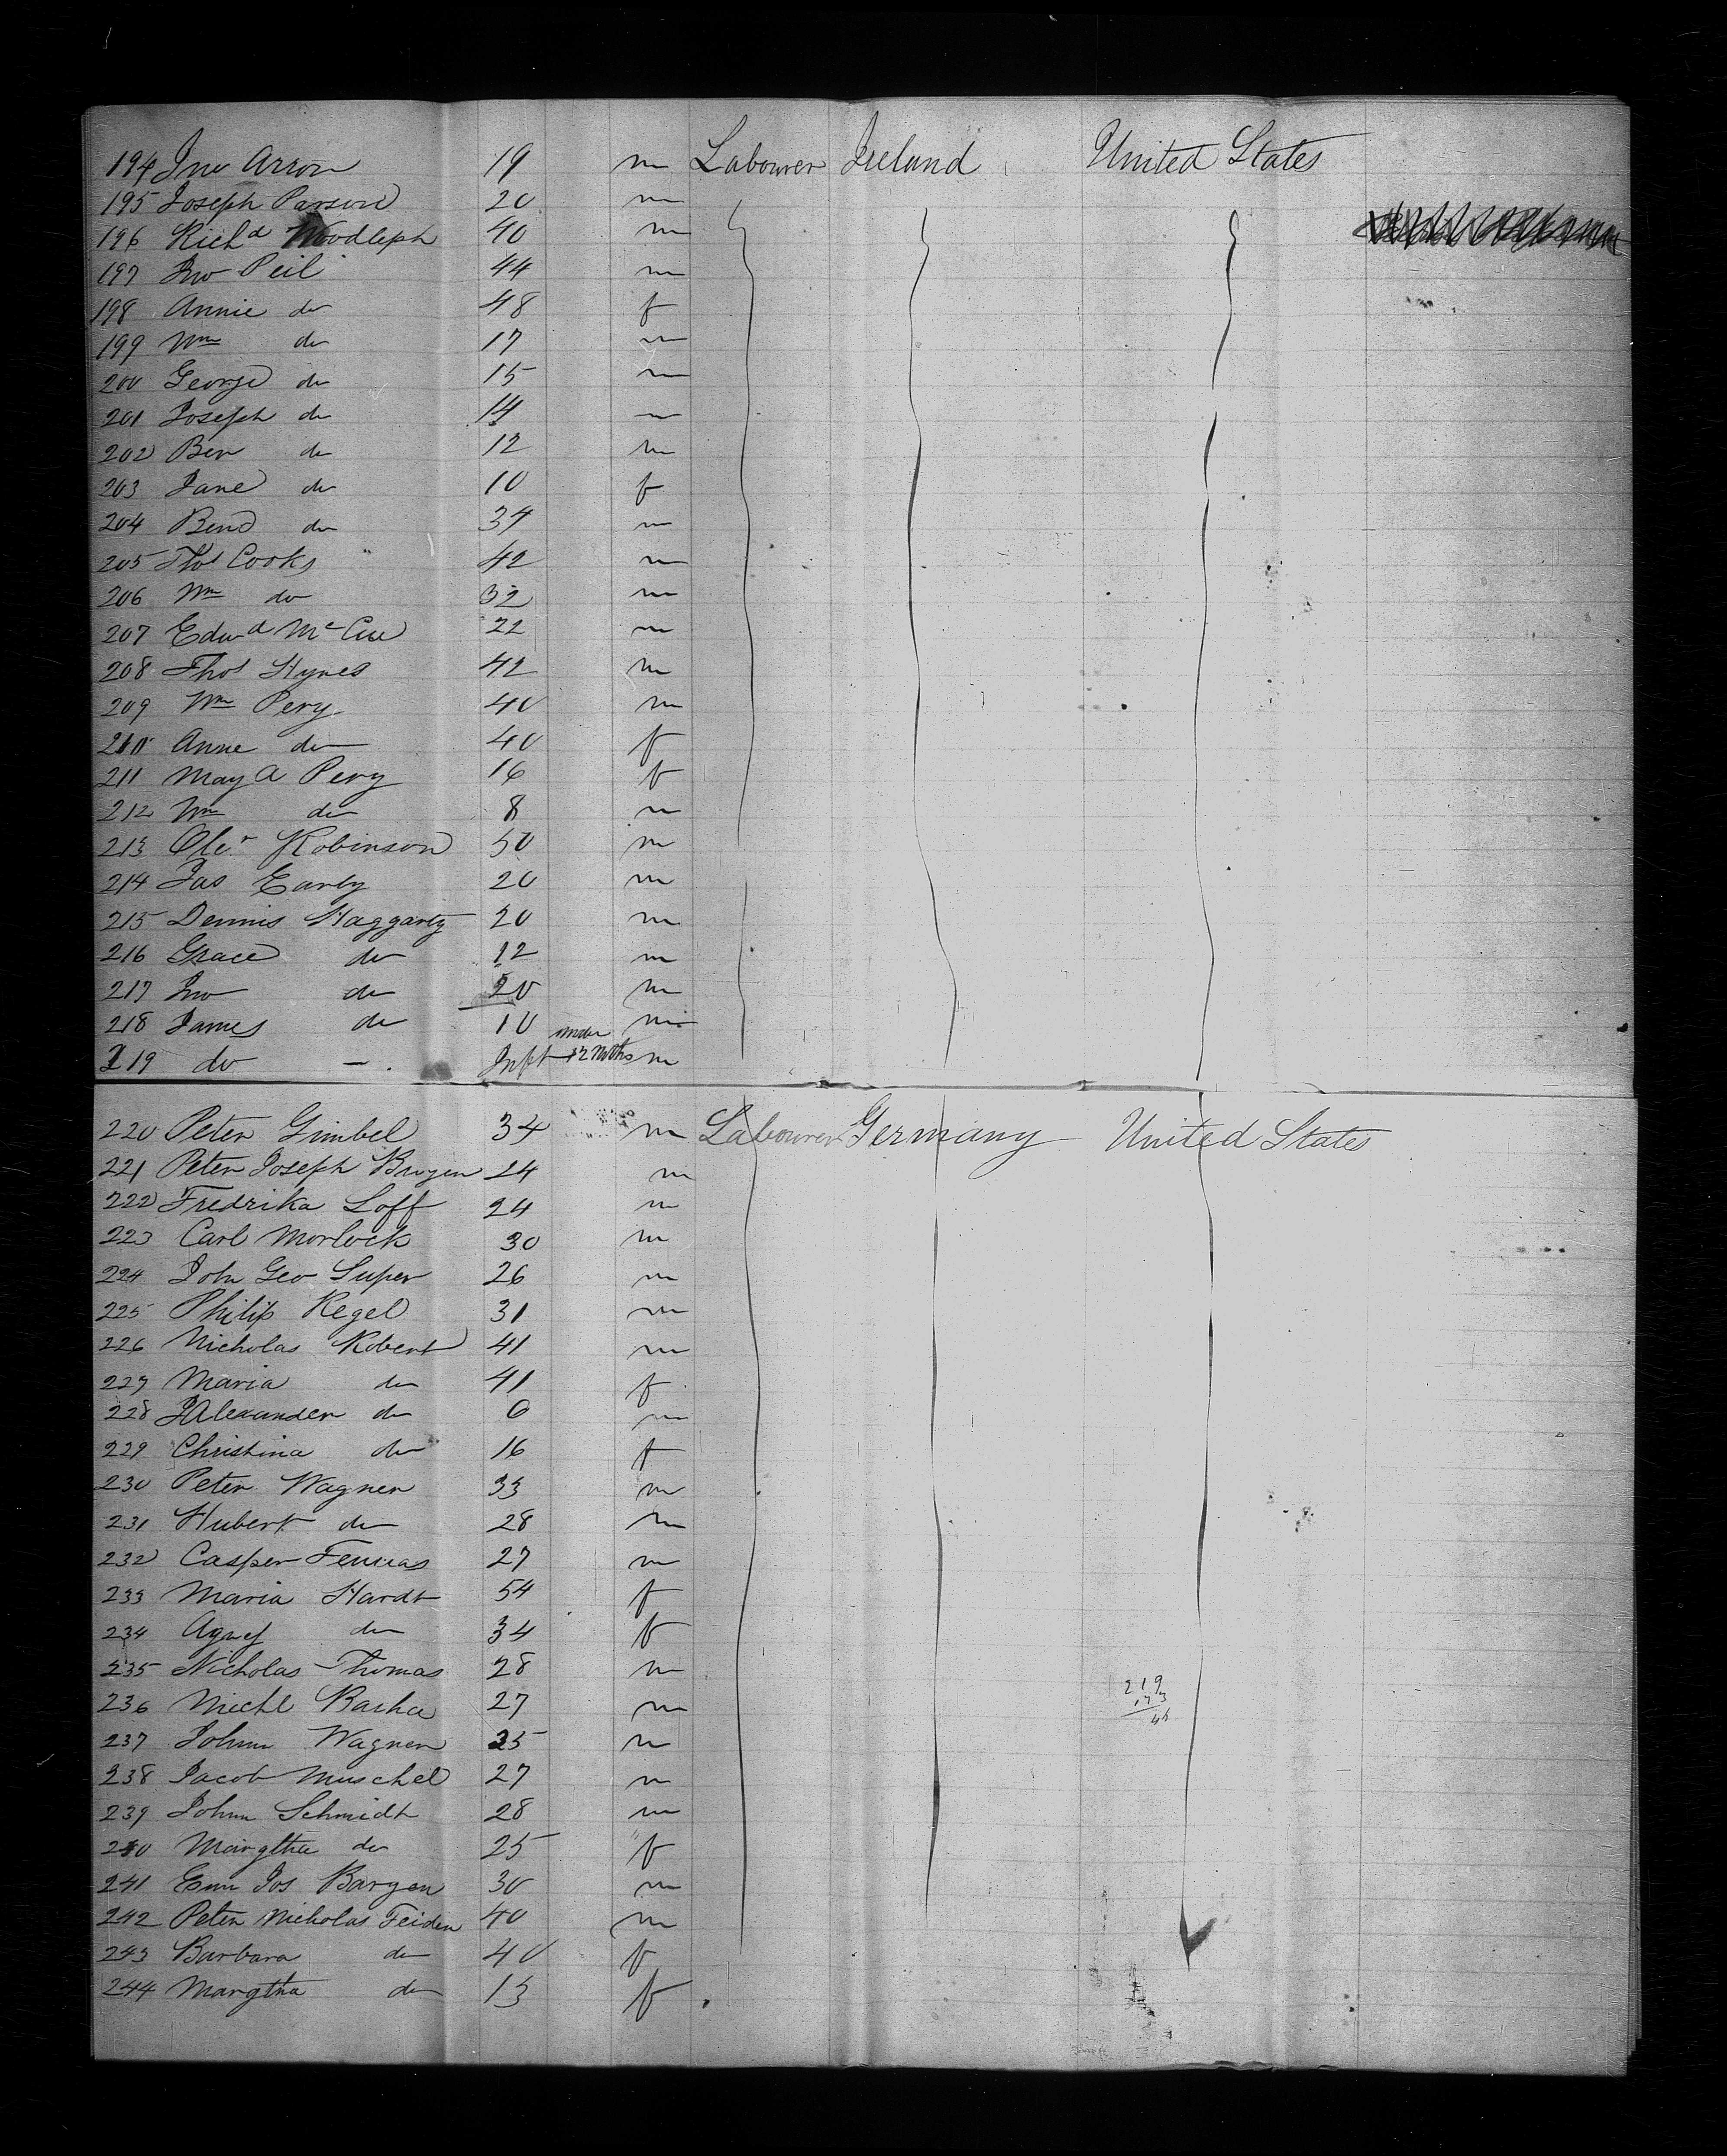 194 Jno Arron 19 m Labourer Ireland United States
195 Joseph Parson 20 m
196 Richd Woodleph 40 m
197 Jno Peil 44 m
198 Annie do 48 f
199 Wm do 17 m
200 George do 15 m
201 Joseph do 14 m
202 Ben do 12 m
203 Jane do 10 f
204 Bend do 34 m
205 Thos Cooks 42 m
206 Wm do 32 m
207 Edwd McCue 22 m
208 Thos Hynes 42 m
209 Wm Pery 40 m
210 Anne do 40 f
211 May A Pery 16 f
212 Wm do 8 m
213 Oler Robinson 50 m
214 Jas Early 20 m
215 Dennis Haggarty 20 m
216 Grace do 12 m
217 Jno do 20 m
218 James do 10 m
219 do - Inft under 12 Mths m
220 Peter Gimbel 34 m Labourer Germany United States
221 Peter Joseph 24 m
222 Fredrika Loff 24 m
223 Carl Morlock 30 m
224 John Geo Super 26 m
225 Philip Kegel 31 m
226 Nicholas Robert 41 m
227 Maria do 41 f
228 JAlexander do 6 m
229 Christina do 16 f
230 Peter Wagner 33 m
231 Hubert do 28 m
232 Casper 27 m
233 Maria Hardt 54 f
234 Agnes do 34 f
235 Nicholas Thomas 28 m
236 Michl Basha 27 m
219
173
46
237 Johnn Wagner 25 m
238 Jacob Muschel 27 m
239 Johnn Schmidt 28 m
240 Margtha do 25 f
241 Jos Bargen 30 m
242 Peter Nicholas Feiden 40 m
243 Barbara do 40 f
244 Margtha do 13 f